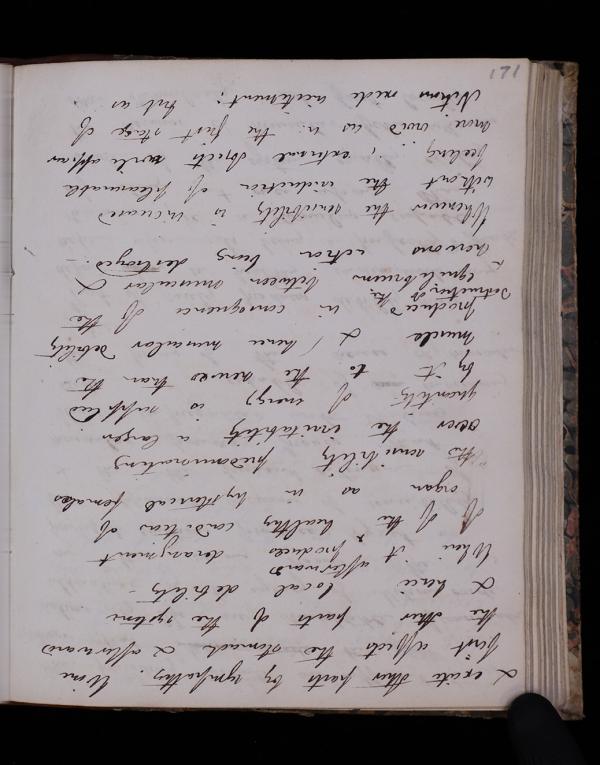 & excite other parts by sympathy. Wine
first affects the stomach & afterwards
the other parts of the system
& hence local debility –
When it afterwards & produces derangment
of the healthy conditions of
organ as in hysterical females
the sensibility predominating
over the irritability a larger
quantity of energy is supplied
by it to the nerves than the
muscle & hence muscular debility
produced in consequence of the
destruction of the equilibrium between muscular &
nervous action being destroyed. –
Whenever the sensibility is increased
without the induction of pleasurable
feeling, external objects will appear
more vivid as in the first stage of
Nitrous oxide excitement; but as
171